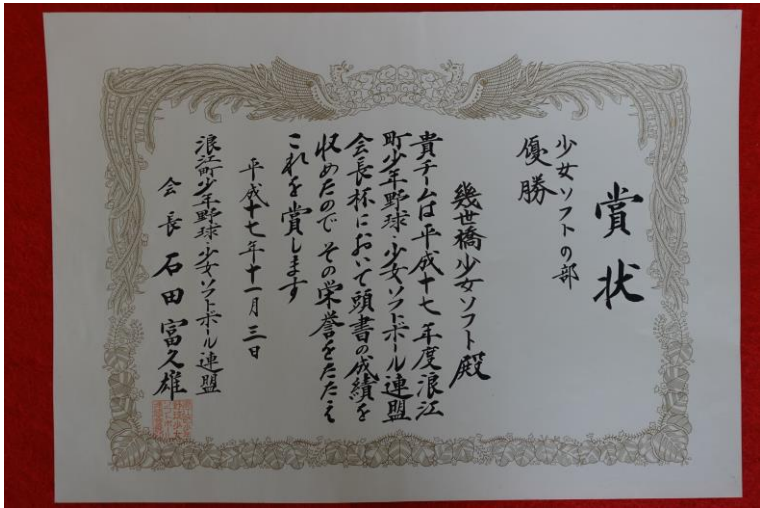 賞状
少女ソフトの部
優勝
幾世橋少女ソフト殿
貴チームは平成十七年度浪江
町少年野球・少女ソフトボール連盟
会長杯において頭書の成績を
収めたのでその栄誉をたたえ
これを賞します
平成十七年十一月三日
浪江町少年野球・少女ソフトボール連盟
会長 石田富久雄